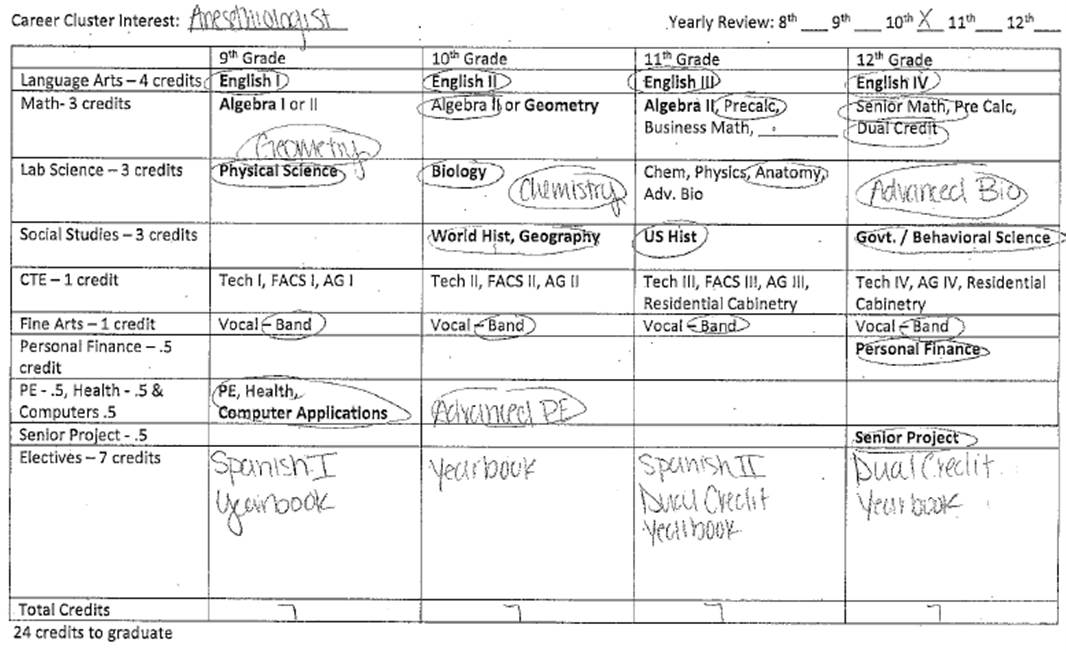 Career Cluster Interest: Anesthiologist Yearly Review: 8th ___ 9th ___ 10th X 11th ___ 12th ___
9th Grade 10th Grade 11th Grade 12th Grade
Language Arts – 4 credits English I English II English III English IV
Math- 3 credits Algebra I or II Algebra II or Geometry Algebra II, Precalc, Senior Math, Pre Calc,
Business Math, ________ Dual Credit
Geometry
Lab Science – 3 credits Physical Science Biology Chem, Physics, Anatomy,
Chemistry Adv. Bio Advanced Bio
Social Studies – 3 credits World Hist, Geography US Hist Govt. / Behavioral Science
CTE – 1 credit Tech I, FACS I, AG I Tech II, FACS II, AG II Tech III, FACS III, AG III, Tech IV, AG IV, Residential
Residential Cabinetry Cabinetry
Fine Arts – 1 credit Vocal – Band Vocal – Band Vocal – Band Vocal – Band
Personal Finance – .5 Personal Finance
credit
PE - .5, Health - .5 & PE, Health,
Computers .5 Computer Applications Advanced PE
Senior Project - .5 Senior Project
Electives – 7 credits Spanish I Yearbook Spanish II Dual Credit
Yearbook Dual Credit Yearbook
Yearbook
Total Credits 7 7 7 7
24 credits to graduate